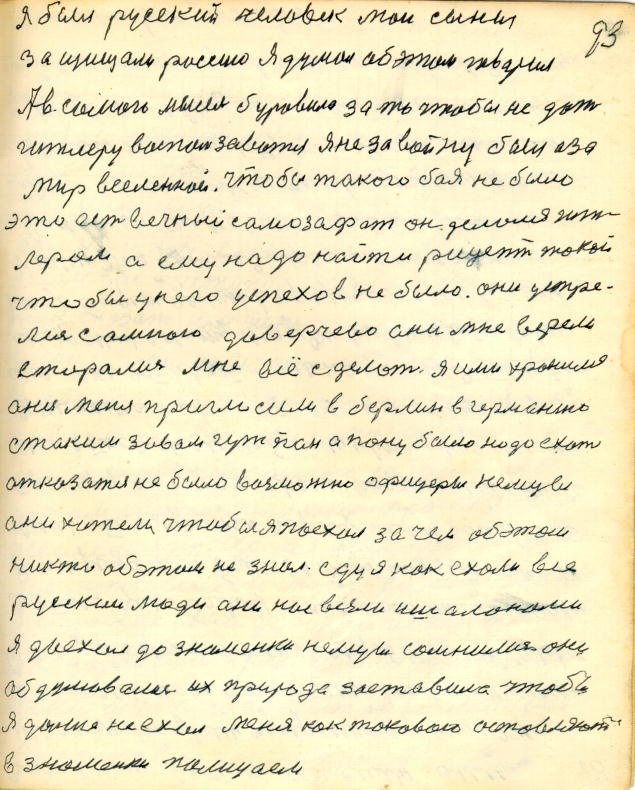 93
я был русский человек мои сыны
защищали россию Я думал об этом творил
А в самого мысел буровило за то чтобы не дат
гитлеру воспользоватся Я не за войну был а за
мир вселенной. Чтобы такого бая не было
это аст вечный самозафат он делолся гит-
лером а ему надо найти рицепт токой
чтобы у него успехов не было. они устре-
лися самною доверчево ани мне верели
сторалися мне всё сделат. Я ими хронился
ани меня пригласили в берлин в германию
с таким завам гут пан а пану было надо ехат
отказатся не было возможно офицеры немцы
ани хотели чтобы я поехал зачем об этом
никто об этом не знал. еду я как ехали все
русскии люди ани нас везли ишалонами
Я доехал до знаменки немцы сомнилися они
обдумавалися их природа заставила чтобы
Я дальше не ехал меня как токового оставляют
в знаменки полицаем